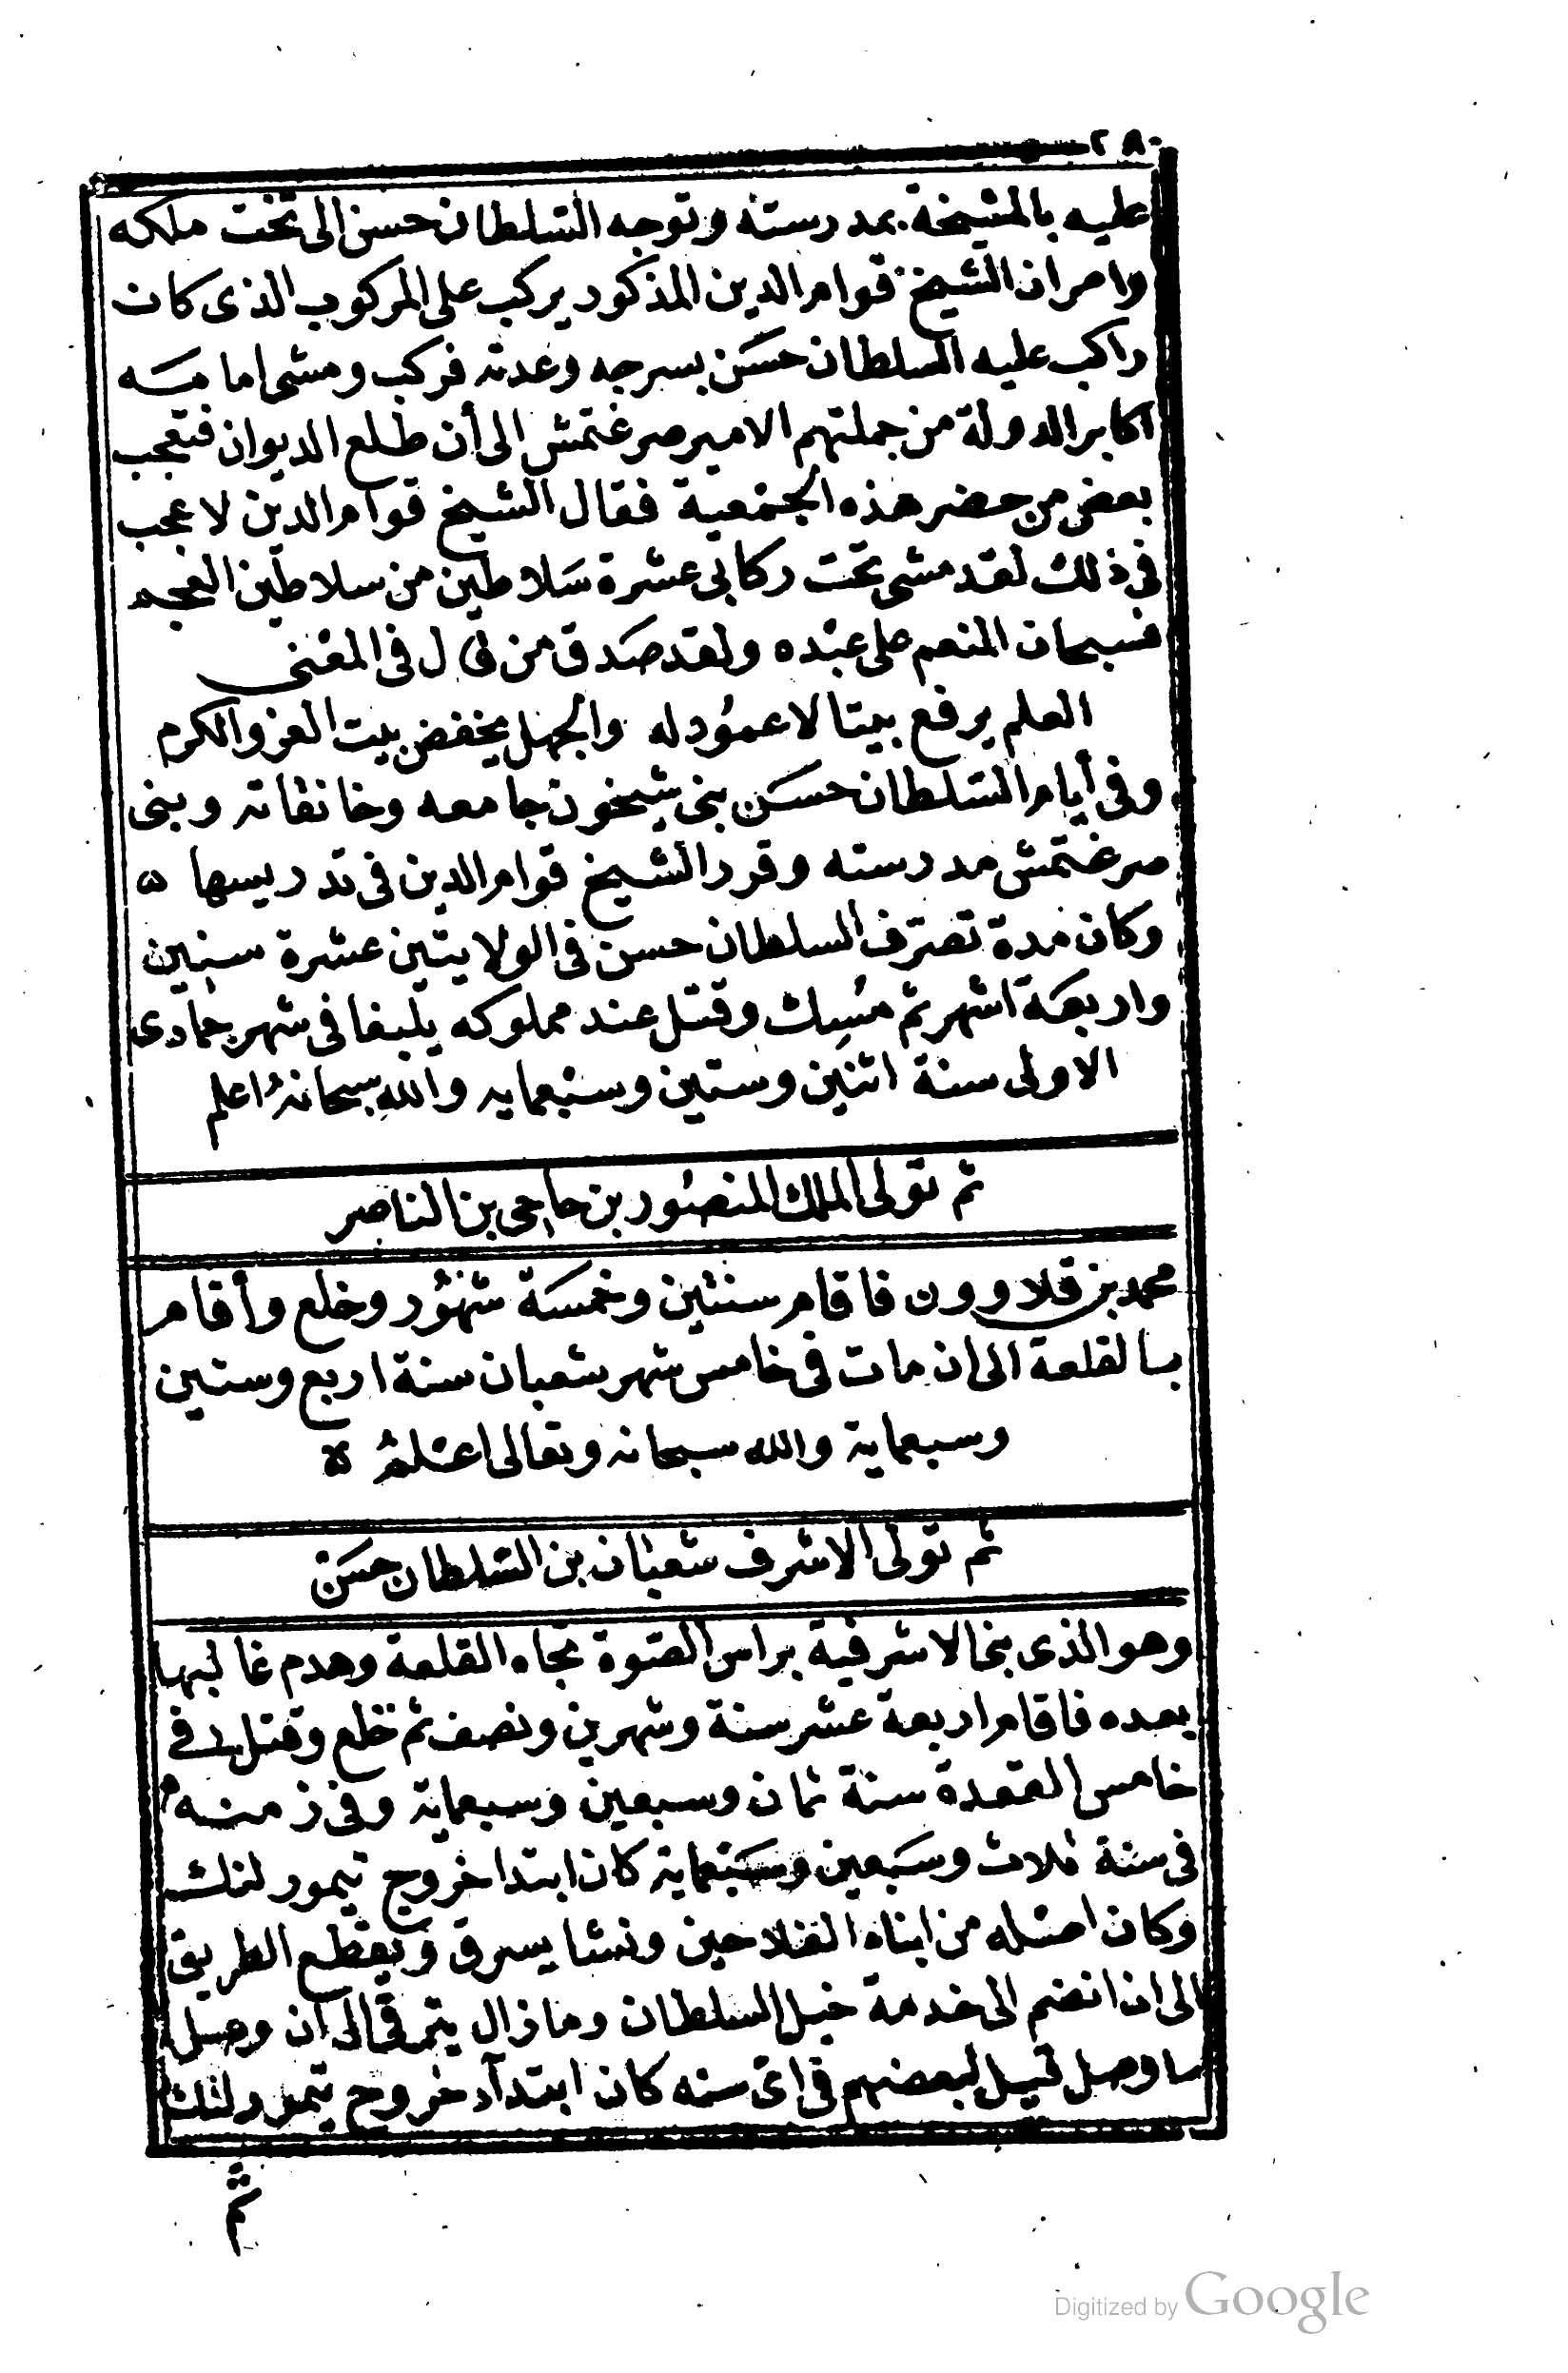 ٢٨٠
عليه بالمشيخة بمدرسته وتوجه السلطان حسن الى تخت ملكه
وامر ان الشيخ قوام الدين المذكور يركب على المركوب الذى كان
راكب عليه السلطان حسن بسرجه وعدته فركب ومشى امامه
اكابر الدولة من جملتهم الامير صرغتمش الى أن طلع الديوان فتعجب
بعض من حضر هذه الجمعية فقال الشيخ قوام الدين لا عجب
فى ذلك لقد مشى تحت ركابى عشرة سلاطين من سلاطين العجم
فسبحان المنعم على عبده ولقد صدق من قال فى المعنى
العلم يرفع بيتا لا عمود له والجهل يخفض بيت العز والكرم
وفى أيام السلطان حسن بنى شيخون جامعه وخانقاته وبنى
صرغتمش مدرسته وقرر الشيخ قوام الدين فى تدريسها ه
وكان مدة تصرف السلطان حسن فى الولايتين عشرة سنين
واربعة اشهر ثم مسك وقتل عند مملوكه يلبغا فى شهر جمادى
الاولى سنة اثنين وستين وسبعمايه والله سبحانه اعلم
ثم تولى الملك المنصور بن حاجى بن الناصر
محمد بن قلاوون فاقام سنتين وخمسة شهور وخلع وأقام
بالقلعة الى ان مات فى خامس شهر شعبان سنة اربع وستين
وسبعماية والله سبحانه وتعالى اعلم ه
ثم تولى الاشرف شعبان بن السلطان حسن
وهو الذى بنا الاشرفية براس الصوة تجاه القلعة وهدم غالبها
بعده فاقام اربعة عشر سنة وشهرين ونصف ثم خلع وقتل فى
خامس القعدة سنة ثمان وسبعين وسبعماية وفى زمنه
فى سنة ثلاث وسبعين وسبعماية كان ابتدا خروج تيمور لنك
وكان اصله من ابناء الفلاحين ونشا يسرق ويقطع الطريق
الى ان انضم الى خدمة خيل السلطان وما زال يترقى الى ان وصل
ما وصل قيل لبعضهم فى اى سنه كان ابتداء خروج تيمور لنك
ثم
Digitized by Google